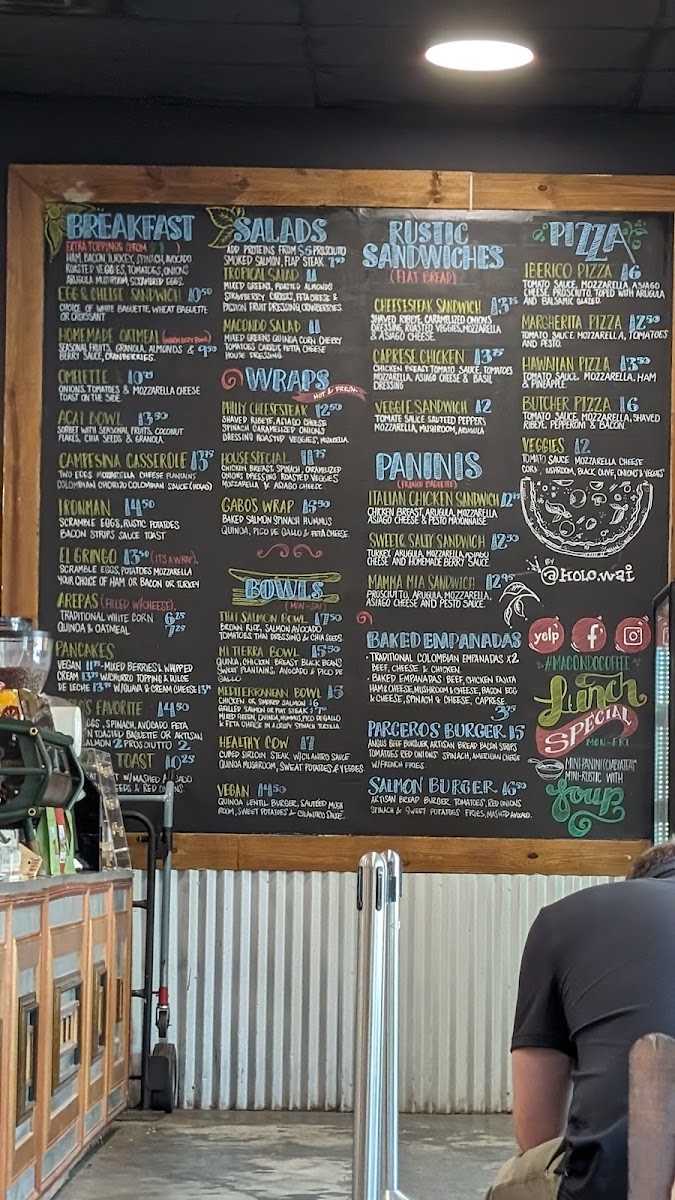 BREAKFAST
EXTRA TOPPINGS (FROM
HAM, BACON, TURKEY, SPINACH, AVOCADO
ROASTED VEGGIES, TOMATOES, ONIONS
ARUGULA MUSHROOM, SCRAMBLED EGGS
EGG & CHEESE SANDWICH 10.50
CHOICE OF WHITE BAGUETTE, WHEAT BAGUETTE
OR CROISSANT
HOMEMADE OATMEAL
SEASONAL FRUITS, GRANOLA, ALMONDS & 9.50
BERRY SAUCE, CRANBERRIES.
OMELETTE 10.75
ONIONS, TOMATOES & MOZZARELLA CHEESE
TOAST ON THE SIDE.
ACAI BOWL 13.50
SORBET WITH SEASONAL FRUITS, COCONUT
FLAKES, CHIA SEEDS & GRANOLA.
CAMPESINA CASSEROLE 13.75
TWO EGGS MOZZARELLA CHEESE PLANTAINS
COLOMBIAN CHORIZO COLOMBIAN SAUCE (HOGAO)
IRONMAN 14.50
SCRAMBLE EGGS, RUSTIC POTATOES
BACON STRIPS SAUCE TOAST
EL GRINGO 13.50 (IT'S A WRAP).
SCRAMBLE EGGS, POTATOES MOZZARELLA
YOUR CHOICE OF HAM OR BACON OR TURKEY
AREPAS (FILLED W/CHEESE).
TRADITIONAL WHITE CORN 6.25
QUINOA & OATMEAL 7.25
PANCAKES
VEGAN 11.75 - MIXED BERRIES & WHIPPED
CREAM 13.75 W/CHURRO TOPPING & DULCE
DE LECHE 13.75 W/GUAVA & CREAM CHEESE 13.75
'S FAVORITE 14.50
EGGS, SPINACH, AVOCADO, FETA
TOASTED BAGUETTE OR ARTISAN
SALMON 2 PROSCIUTTO 2
TOAST 10.25
W/ MASHED AVOCADO
SEEDS & RED ONIONS
SALADS
ADD PROTEINS FROM $5 PROSCIUTTO
SMOKED SALMON, FLAP STEAK 7.50
TROPICAL SALAD 11
MIXED GREENS, ROASTED ALMONDS
STRAWBERRY CARROTS, FETA CHEESE &
PASSION FRUIT DRESSING, CRANBERRIES.
MACONDO SALAD 11
MIXED GREENS QUINOA CORN CHERRY
TOMATOES CARROTS FETTA CHEESE
HOUSE DRESSING
WRAPS
HOT & FRESH
PHILLY CHEESESTEAK 12.50
SHAVED RIBEYE, ASIAGO CHEESE
SPINACH CARAMELIZED ONIONS
DRESSING ROASTED VEGGIES, MOZZARELLA.
HOUSE SPECIAL 11.75
CHICKEN BREAST, SPINACH, CARAMELIZED
ONIONS DRESSING ROASTED VEGGIES
MOZZARELLA & ASIAGO CHEESE.
GABO'S WRAP 13.50
BAKED SALMON SPINACH HUMMUS
QUINOA, PICO DE GALLO & FETA CHEESE
BOWLS
(MON-SAT)
THAI SALMON BOWL 17.50
BROWN RICE, SALMON AVOCADO
TOMATOES THAI DRESSING & CHIA SEEDS.
MI TIERRA BOWL 15.50
QUINOA, CHICKEN BREAST BLACK BEANS
SWEET PLANTAINS, AVOCADO & PICO DE
GALLO
MEDITERRANEAN BOWL 15
CHICKEN OR SMOKED SALMON 16
GRILLED SALMON OR FLAP STEAK 17
MIXED GREEN, QUINOA, HUMMUS, PICO DE GALLO
& FETA CHEESE IN A CRISPY SPINACH TORTILLA
HEALTHY COW 17
CUBED SIRLOIN STEAK W/CILANTRO SAUCE
QUINOA MUSHROOM, SWEET POTATOES & VEGGIES
VEGAN 14.50
QUINOA LENTIL BURGER, SAUTEED MUSH
ROOM, SWEET POTATOES & CILANTRO SAUCE.
RUSTIC
SANDWICHES
(FLAT BREAD)
CHEESESTEAK SANDWICH 13.75
SHAVED RIBEYE, CARAMELIZED ONIONS
DRESSING, ROASTED VEGGIES, MOZZARELLA
& ASIAGO CHEESE.
CAPRESE CHICKEN 13.75
CHICKEN BREAST TOMATO SAUCE, TOMATOES
MOZZARELLA, ASIAGO CHEESE & BASIL
DRESSING
VEGGIE SANDWICH 12
TOMATE SAUCE SAUTEED PEPPERS
MOZZARELLA, MUSHROOM, ARUGULA
PANINIS
(FRENCH BAGUETTE)
ITALIAN CHICKEN SANDWICH
CHICKEN BREAST, ARUGULA, MOZZARELLA
ASIAGO CHEESE & PESTO MAYONNAISE
SWEET & SALTY SANDWICH 12.50
TURKEY, ARUGULA, MOZZARELLA, ASIAGO
CHEESE AND HOMEMADE BERRY SAUCE
MAMMA MIA SANDWICH 12.95
PROSCIUTTO, ARUGULA, MOZZARELLA,
ASIAGO CHEESE AND PESTO SAUCE.
BAKED EMPANADAS
- TRADITIONAL COLOMBIAN EMPANADAS X2
BEEF, CHEESE & CHICKEN.
- BAKED EMPANADAS: BEEF, CHICKEN FAJITA
HAM & CHEESE, MUSHROOM & CHEESE, BACON EGG
& CHEESE, SPINACH & CHEESE, CAPRESE
3.75
PARCEROS BURGER 15
ANGUS BEEF BURGUER, ARTISAN BREAD BACON STRIPS
TOMATOES RED ONIONS SPINACH, AMERICAN CHEESE
W/FRENCH FRIES.
SALMON BURGER 16.50
ARTISAN BREAD BURGER TOMATOES, RED ONIONS
SPINACH & SWEET POTATOES FRIES, MASHED AVOCADO.
PIZZA
IBERICO PIZZA 16
TOMATO SAUCE, MOZZARELLA, ASIAGO
CHEESE, PROSCIUTTO, TOPED WITH ARUGULA
AND BALSAMIC GLAZED.
MARGHERITA PIZZA 12.50
TOMATO SAUCE MOZZARELLA, TOMATOES
AND PESTO.
HAWAIIAN PIZZA 13.50
TOMATO SAUCE, MOZZARELLA, HAM
& PINEAPPLE.
BUTCHER PIZZA 16
TOMATO SAUCE, MOZZARELLA, SHAVED
RIBEYE, PEPPERONI & BACON.
VEGGIES 12
TOMATO SAUCE MOZZARELLA CHEESE
CORN, MUSHROOM, BLACK OLIVE, ONIONS & VEGGIES
BY
@KOLO.WAI
yelp
f
#MACONDOCOFFEE
Lunch
SPECIAL
MON-FRI
MINI-RUSTIC WITH
Soup